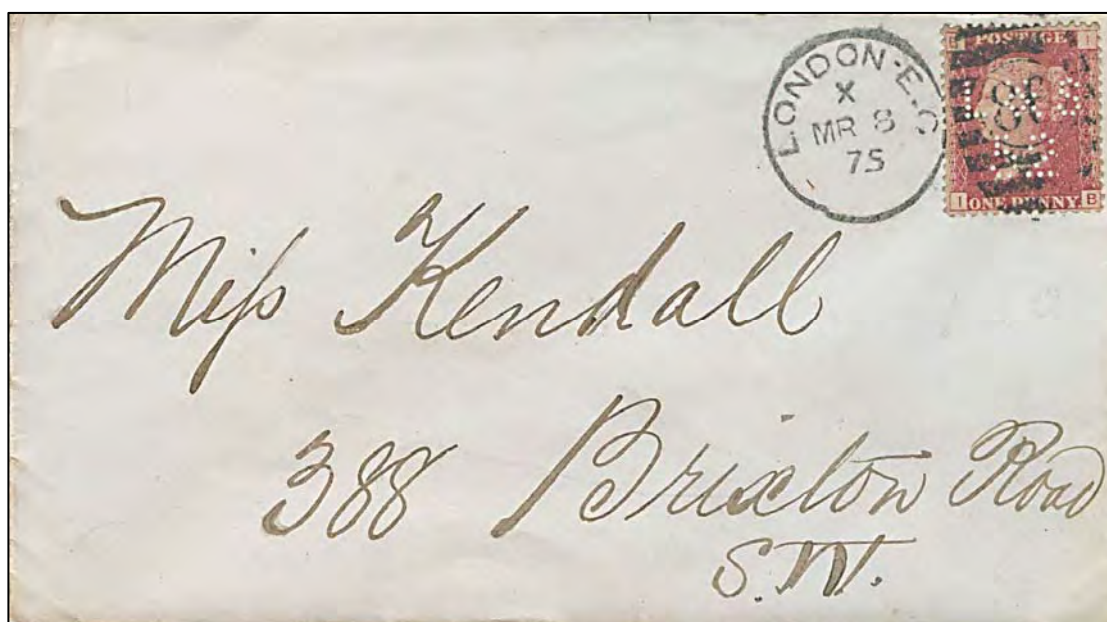 LONDON-E.C
X
MR 8
75
POSTAGE
I
I ONE PENNY. B
Miſs Kendall
388 Brixton Road
S.W.